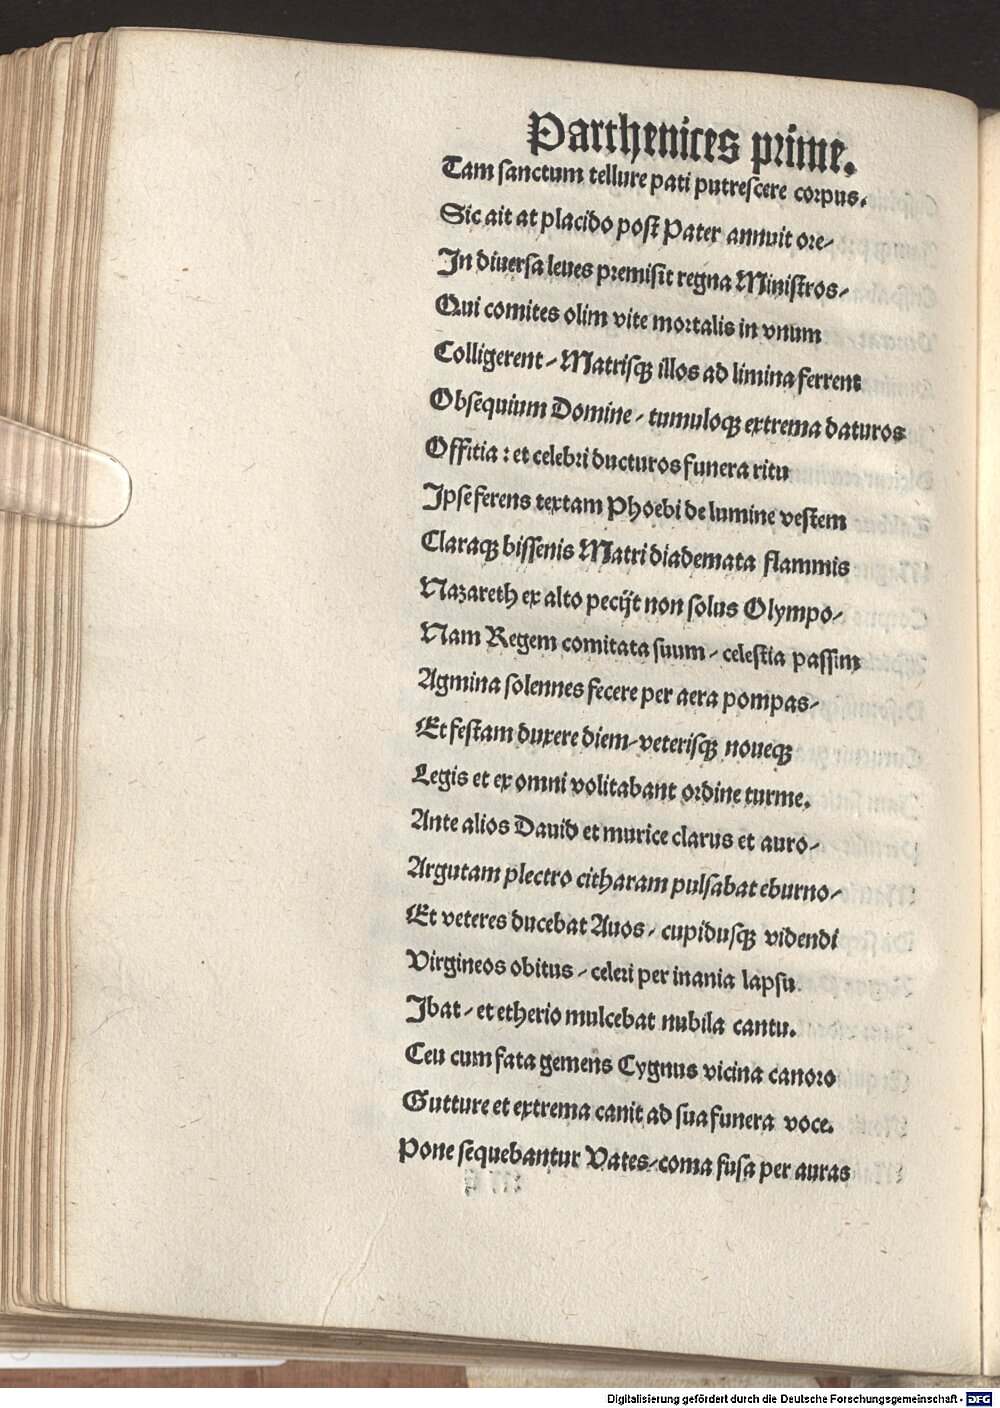 Parthenices prime.
Tam ſanctum tellure pati putreſcere corpus.
Sic ait at placido poſt Pater annuit ore/
In diuerſa leues premiſit regna Miniſtros/
Qui comites olim vite mortalis in vnum
Colligerent / Matriſqꝫ illos ad limina ferrent
Obſequium Domine / tumuloqꝫ extrema daturos
Offitia : et celebri ducturos funera ritu
Ipſe ferens textam Phoebi de lumine veſtem
Claraqꝫ biſſenis Matri diademata flammis
Nazareth ex alto pecijt non ſolus Olympo/
Nam Regem comitata ſuum / celeſtia paſſim
Agmina ſolennes fecere per aera pompas/
Et feſtam duxere diem/veteriſqꝫ noueqꝫ
Legis et ex omni volitabant ordine turme.
Ante alios Dauid et murice clarus et auro/
Argutam plectro citharam pulſabat eburno/
Et veteres ducebat Auos / cupiduſqꝫ videndi
Virgineos obitus / celeri per inania lapſu
Ibat / et etherio mulcebat nubila cantu.
Ceu cum fata gemens Cygnus vicina canoro
Gutture et extrema canit ad ſua funera voce.
Pone ſequebantur Vates/coma fuſa per auras
Digitalisierung gefördert durch die Deutsche Forschungsgemeinschaft - DFG